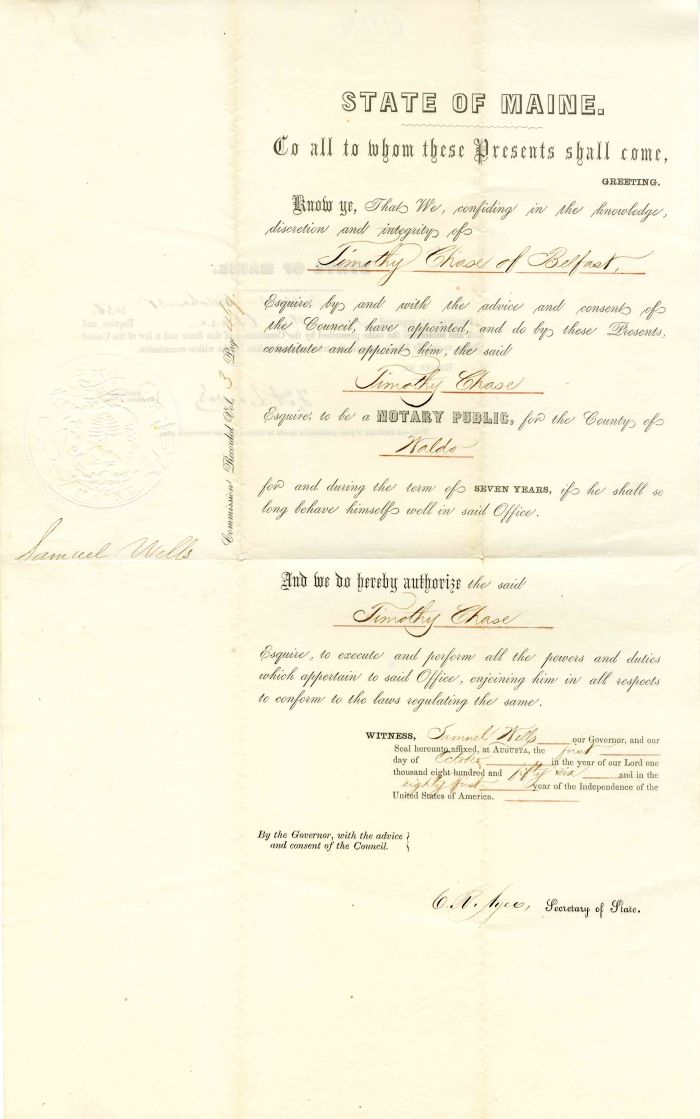 STATE OF MAINE.
To all to whom these Presents shall come,
GREETING.
Know ye, That We, confiding in the knowledge,
discretion and integrity of
Timothy Chase of Belfast,
Esquire, by and with the advice and consent of
the Council, have appointed, and do by these Presents,
constitute and appoint him, the said
Timothy Chase
Esquire, to be a NOTARY PUBLIC, for the County of
Waldo
for and during the term of SEVEN YEARS, if he shall so
long behave himself well in said Office.
And we do hereby authorize the said
Timothy Chase
Esquire, to execute and perform all the powers and duties
which appertain to said Office, enjoining him in all respects
to conform to the laws regulating the same.
WITNESS, Samuel Wells our Governor, and our
Seal hereunto affixed, at AUGUSTA, the first
day of October in the year of our Lord one
thousand eight hundred and fifty six and in the
eighty first year of the Independence of the
United States of America.
By the Governor, with the advice
and consent of the Council.
C. R. Ayer, Secretary of State.
Commission Recorded Vol. 3 Page
Samuel Wells